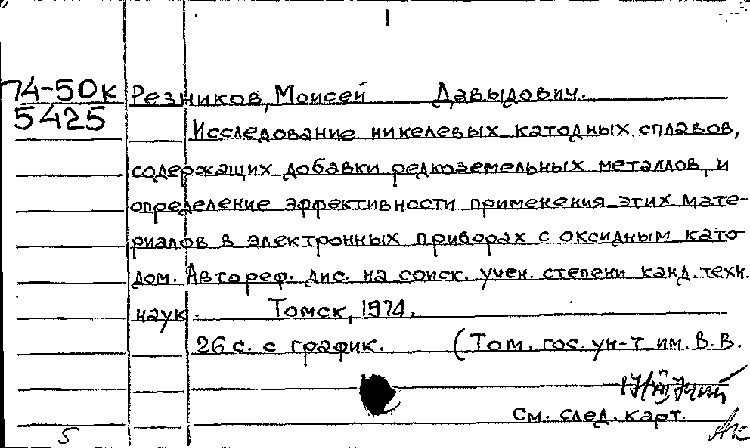 74-50к Резников, Моисей Давыдович.
5425 Исследование никелевых катодных сплавов,
содержащих добавки редкоземельных металлов, и
определение эффективности применения этих мате-
риалов в электронных приборах с оксидным като-
дом. Автореф. дис. на соиск. учен. степени канд. техн.
наук. Томск, 1974.
26 с. с график. (Том. гос. ун-т им. В. В.
См. след. карт.
5